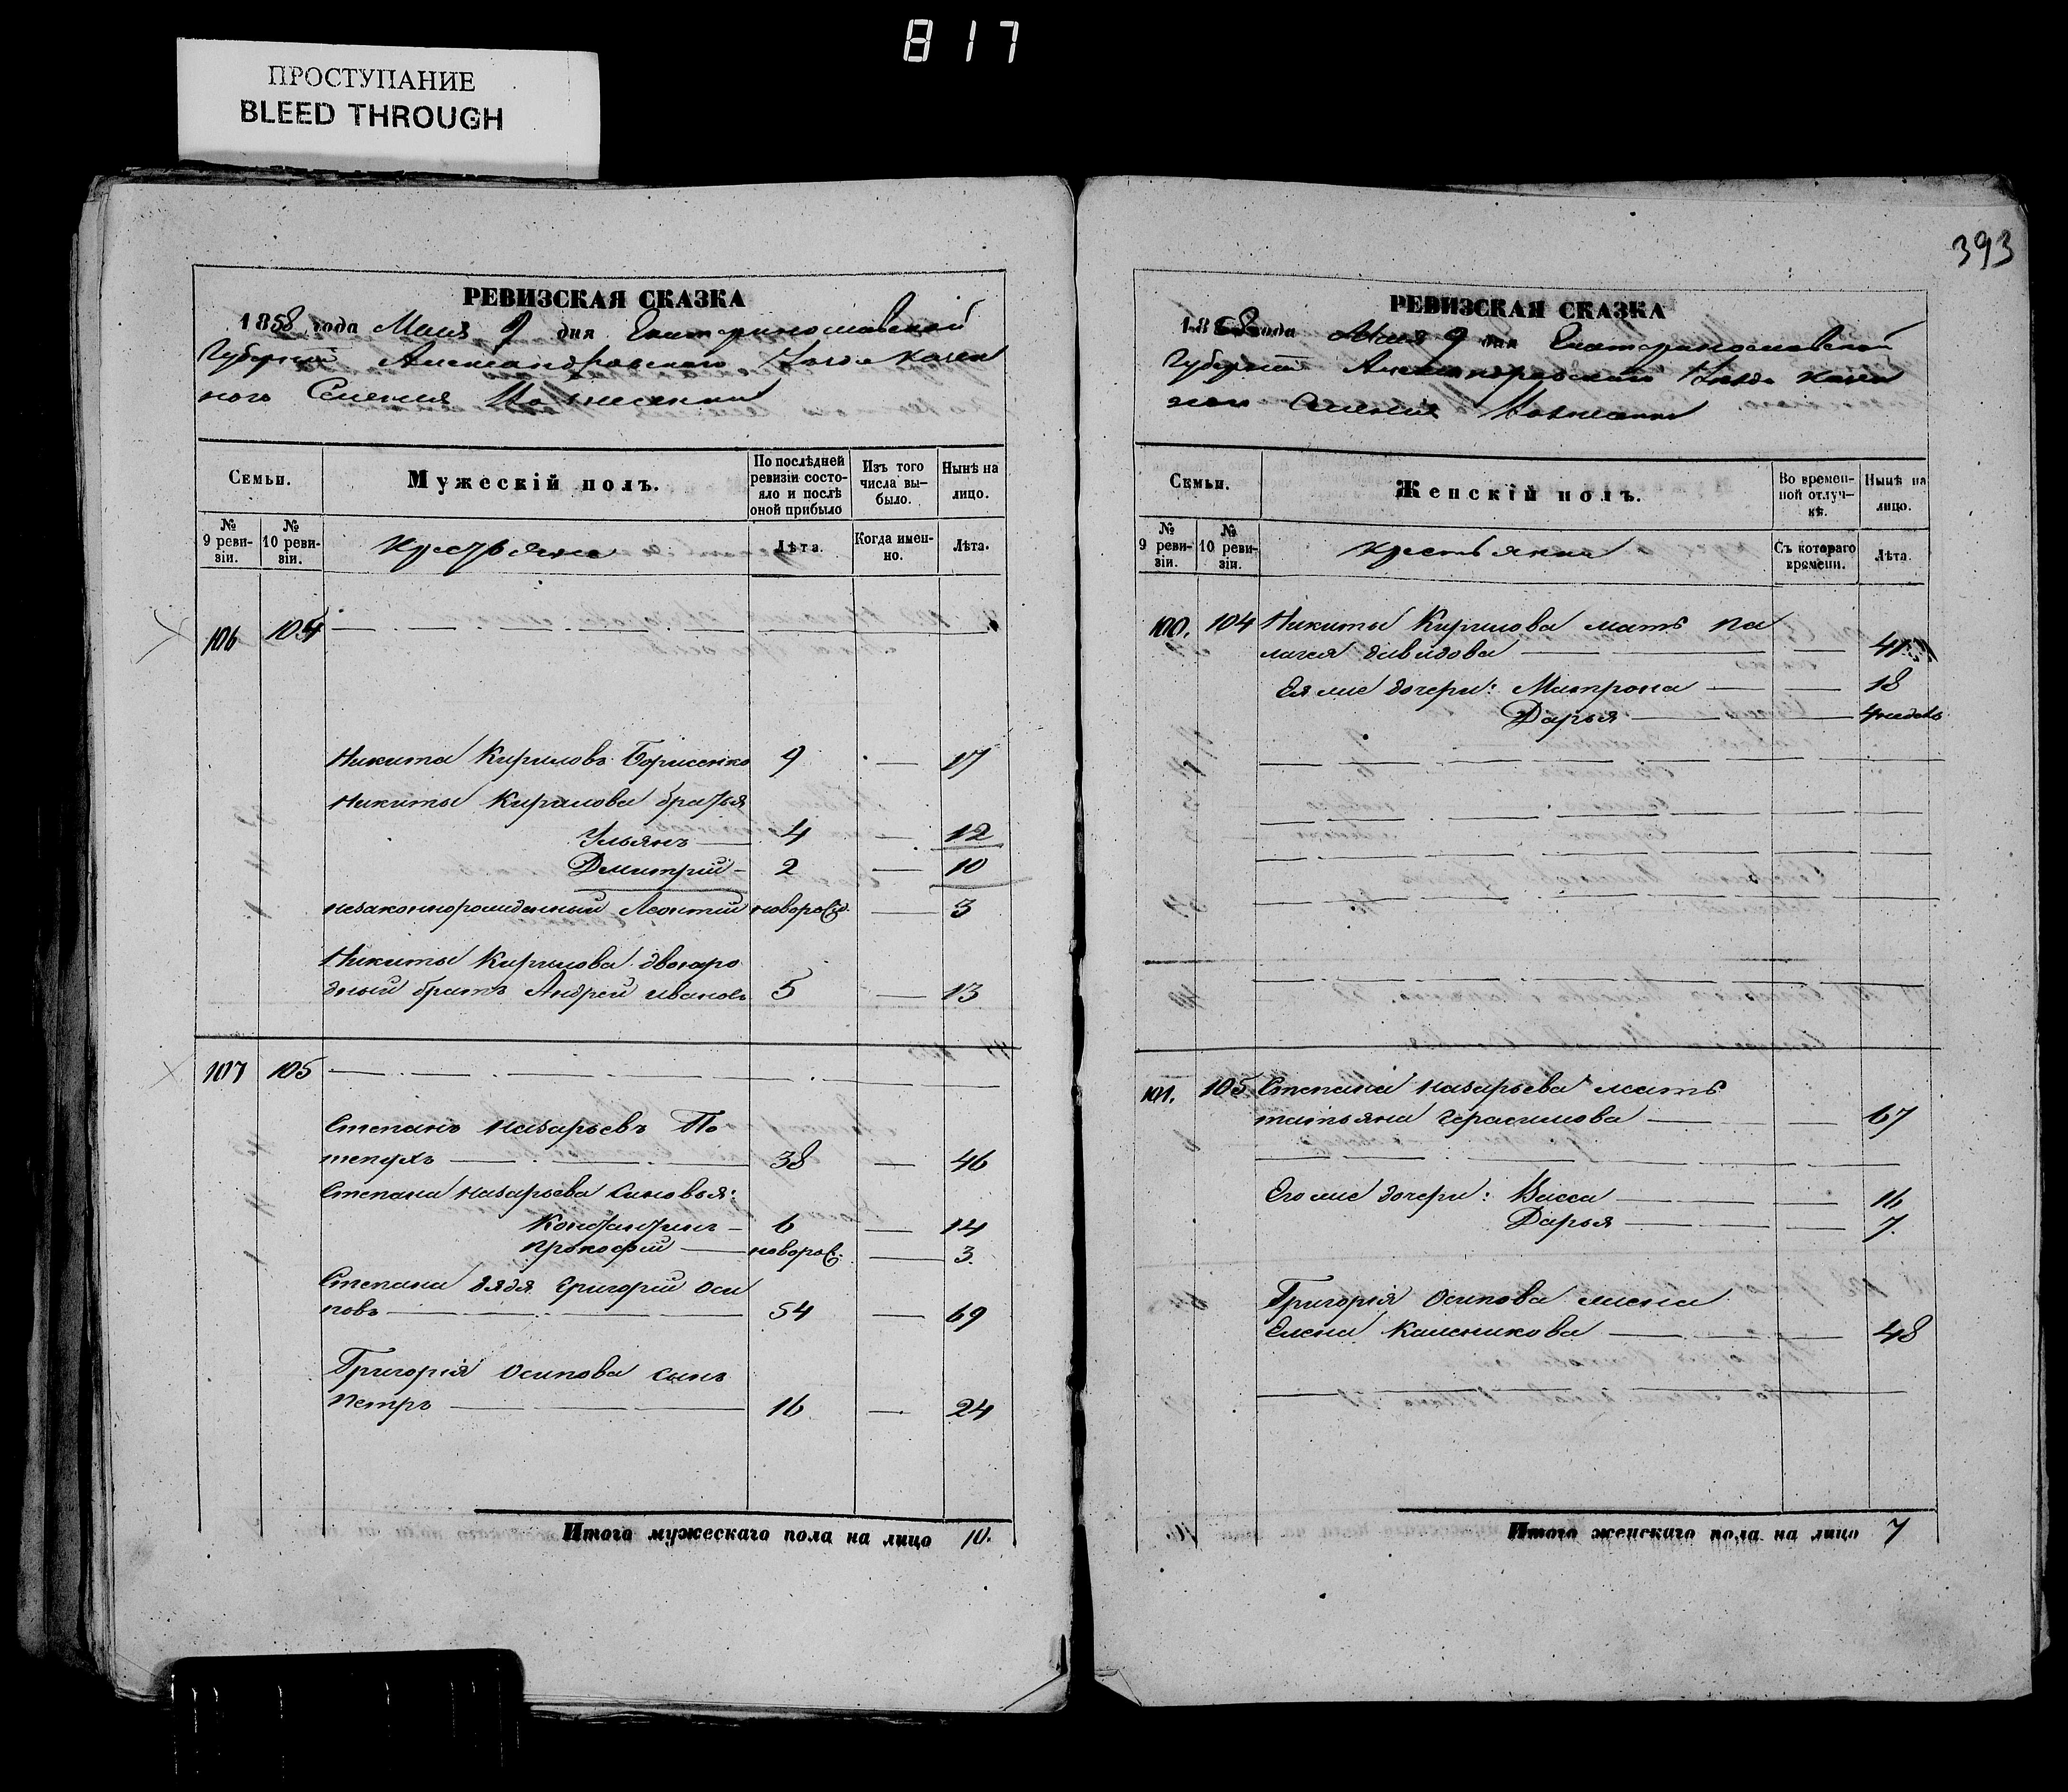 817
ПРОСТУПАНИЕ
BLEED THROUGH
РЕВИЗСКАЯ СКАЗКА
1858 года Маія 9 дня Екатеринославской
Губерніи Александровскаго Уезда Казен
наго Селенія
Семьи.
Мужескій полъ.
По послѣдней ревизіи состо-
яло и послѣ оной прибыло
Изъ того числа вы-
было.
Нынѣ на лицо.
№ 9 реви-
зіи.
№ 10 реви-
зіи.
Крестьяне
Лѣта.
Когда имен-
но.
Лѣта.
106 104
Никита Кириловъ Борисенко 9 — 17
Никиты Кирилова братья
Ульянъ — 4 — 12
Дмитрій - 2 — 10
незаконнорожденный Леонтій новорожд. — 3
Никиты Кирилова двоюро
дный братъ Андрей Ивановъ 5 — 13
107 105
Степанъ Назарьевъ По
тепухъ — 38 — 46
Степана Назарьева сыновья:
Константинъ - 6 — 14
Прокофій — новорож. — 3.
Степана дядя Григорій Оси
повъ — 54 — 69
Григорія Осипова сынъ
Петръ — 16 — 24
Итого мужескаго пола на лицо 10.
393
РЕВИЗСКАЯ СКАЗКА
1858 года Маія 9 дня Екатеринославской
Губерніи Александровскаго Уезда Казен
наго Селенія
Семьи.
Женскій полъ.
Во времен-
ной отлуч-
кѣ.
Нынѣ на лицо.
№ 9 реви-
зіи.
№ 10 реви-
зіи.
Крестьянки
Съ котораго времени.
Лѣта.
100. 104 Никиты Кирилова мать Па
лагея Давидова — — 41
Ея же дочери: Матрона — — 18
Дарья — — 4 недель
101. 105 Степана Назарьева мать
Татьяна Герасимова — — 67
Его же дочери: Васса — — 16
Дарья — — 7.
Григорія Осипова жена
Елена Каленикова — — 48
Итого женскаго пола на лицо 7